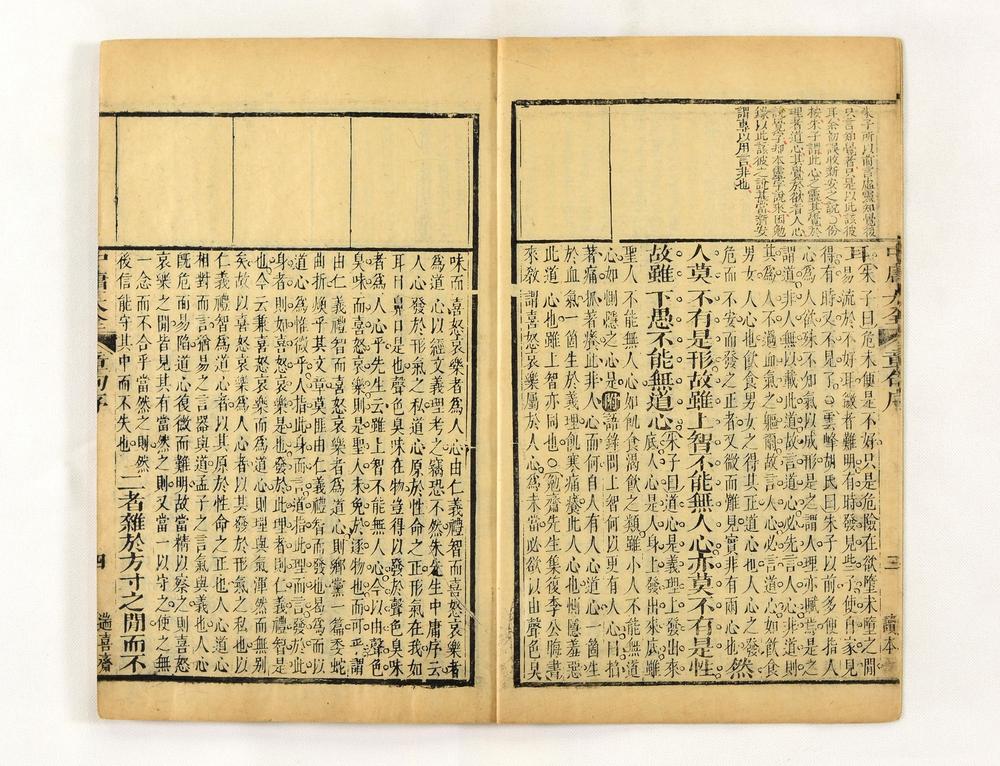 朱子所以前言虛靈知覺後
只言知覺者只是以此該彼
耳余初誤收斷安之說○份
按朱子謂此心之靈其覺於
理者道心其覺於欲者人心
說覺字却本靈字說來因勉
錄以此該彼之說甚當新安
謂專以用言非也
中庸大全 章句序 三 讀本
耳 朱子曰危未便是不好只是危險在欲墮未墮之間
易流於不好耳微者難明有時發見些子使自家見
得有時又不見了○雲峰胡氏曰朱子以前多便指人
心為人欲殊不知氣以成形是之謂人理亦賦焉是之
謂道非人無以載此道故言道心必先言人心非道則
其為人不過血氣之軀爾故言人心必言道心如飲食
男女人心也飲食男女之得其正道心也人心之發
危而不安而發之正者又微而難見實非有兩心也 然
人莫不有是形故雖上智不能無人心亦莫不有是性
故雖下愚不能無道心 朱子曰道心是義理上發出來
底人心是人身上發出來底雖
聖人不能無人心如飢食渴飲之類雖小人不能無道
心如惻隱之心是○問語錄問上智何以更有人心曰掐
著痛抓著癢此非人心而何自人有人心道心一箇生
於血氣一箇生於義理飢寒痛癢此人心也惻隱羞惡
此道心也雖上智亦同也○勉齋先生集後李公晦書
來敎謂喜怒哀樂屬於人心為未當必欲以由聲色臭
味而喜怒哀樂者為人心由仁義禮智而喜怒哀樂者
為道心以經文義理考之竊恐不然朱先生中庸序云
人心發於形氣之私道心原於性命之正形氣在我如
耳目鼻口是也聲色臭味在物豈得以發於聲色臭味
者為人心乎先生云雖上智不能無人心今以由聲色
臭味而喜怒哀樂則是聖人未免於逐物也而可乎謂
由仁義禮智而喜怒哀樂者為道心則鄉黨一篇委蛇
曲折煥乎其文章莫非由仁義禮智而發也曷為而以
道心為惟微乎人指此身而言道指此理而言發於此
身者則如喜怒哀樂是也發於此理者則仁義禮智是
也今云兼喜怒哀樂而為道心則理與氣渾然而無別
矣故以喜怒哀樂為人心者以其發於形氣之私也以
仁義禮智為道心者以其原於性命之正也人心道心
相對而言猶易之言器與道孟子之言氣與義也人心
旣危而易陷道心復微而難明故當精以察之則喜怒
哀樂之間皆見其有當然之則又當一以守之使之無
一念而不合乎當然之則然
後信能守其中而不失也 二者雜於方寸之間而不
中庸大全 章句序 四 遄喜齋